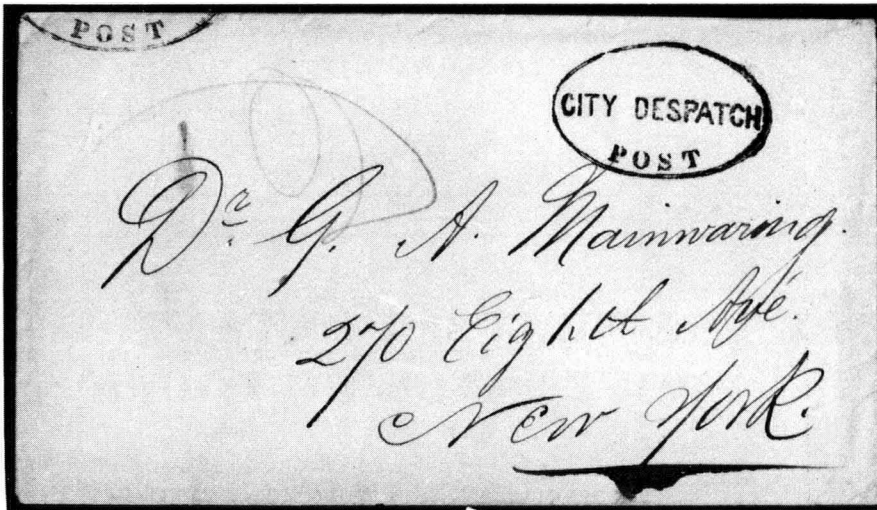 POST
CITY DESPATCH
POST
Dr. G. A. Mainwaring.
270 Eight Ave.
New York.